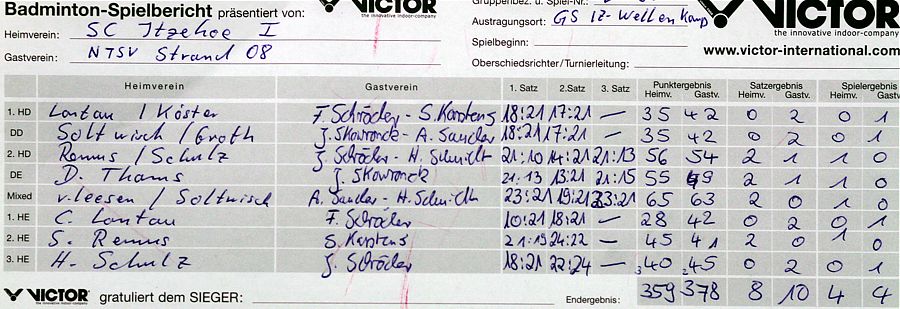 Badminton-Spielbericht präsentiert von: VICTOR the innovative indoor-company
Gruppenbez. u. Spiel-Nr.:
VICTOR the innovative indoor-company
Heimverein: SC Itzehoe I
Austragungsort: GS IZ-Wellenkamp
Gastverein: NTSV Strand 08
Spielbeginn:
www.victor-international.com
Oberschiedsrichter/Turnierleitung:
Heimverein Gastverein 1. Satz 2. Satz 3. Satz Punktergebnis Satzergebnis Spielergebnis
Heimv. Gastv. Heimv. Gastv. Heimv. Gastv.
1. HD Lantau / Köster F. Schröder - S. Karstens 18:21 17:21 — 35 42 0 2 0 1
DD Soltwisch / Groth J. Skowronek - A. Sander 18:21 17:21 — 35 42 0 2 0 1
2. HD Remus / Schulz J. Schröder - H. Schmidt 21:10 14:21 21:13 56 54 2 1 1 0
DE D. Thams J. Skowronek 21:13 13:21 21:15 55 49 2 1 1 0
Mixed v. Leesen / Soltwisch A. Sander - H. Schmidt 23:21 19:21 23:21 65 63 2 0 1 0
1. HE C. Lantau F. Schröder 10:21 18:21 — 28 42 0 2 0 1
2. HE S. Remus S. Karstens 21:19 24:22 — 45 41 2 0 1 0
3. HE H. Schulz J. Schröder 18:21 22:24 — 40 45 0 2 0 1
VICTOR the innovative indoor-company gratuliert dem SIEGER: Endergebnis: 359 378 8 10 4 4